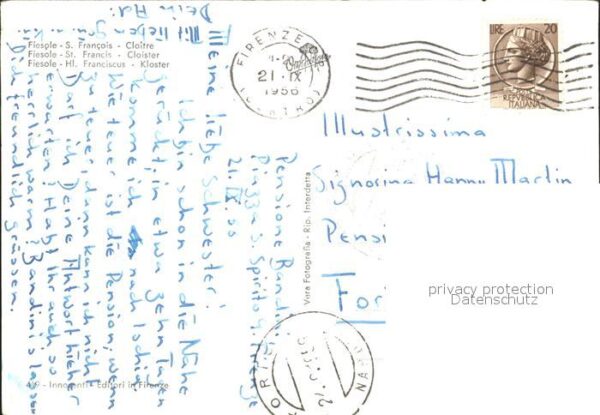 Fiesole - S. François - Cloître
Fiesole - St. Francis - Cloister
Fiesole - Hl. Franciscus - Kloster
FIRENZE
21 · IX
1956
LIRE 20
REPUBBLICA
ITALIANA
Illustrissima
Signorina Hanny Martin
Pensi
For
Vera Fotografia - Rip. Interdetta
privacy protection
Datenschutz
Pensione Bandini
Piazza S. Spirito 9. Firenze
21. IX. 56
Meine liebe Schwester!
Ich bin schon in die Nähe
gerückt, in etwa zehn Tagen
komme ich nach Ischia.
Wie teuer ist die Pension, wenn
zu teuer, dann kann ich nicht.
Darf ich Deine Antwort hieher
erwarten? Habt Ihr auch so
herrlich warm? Bandini's lassen
Dich freundlich grüssen.
Mit lieben
Dein
- Innocenti - Editori in Firenze